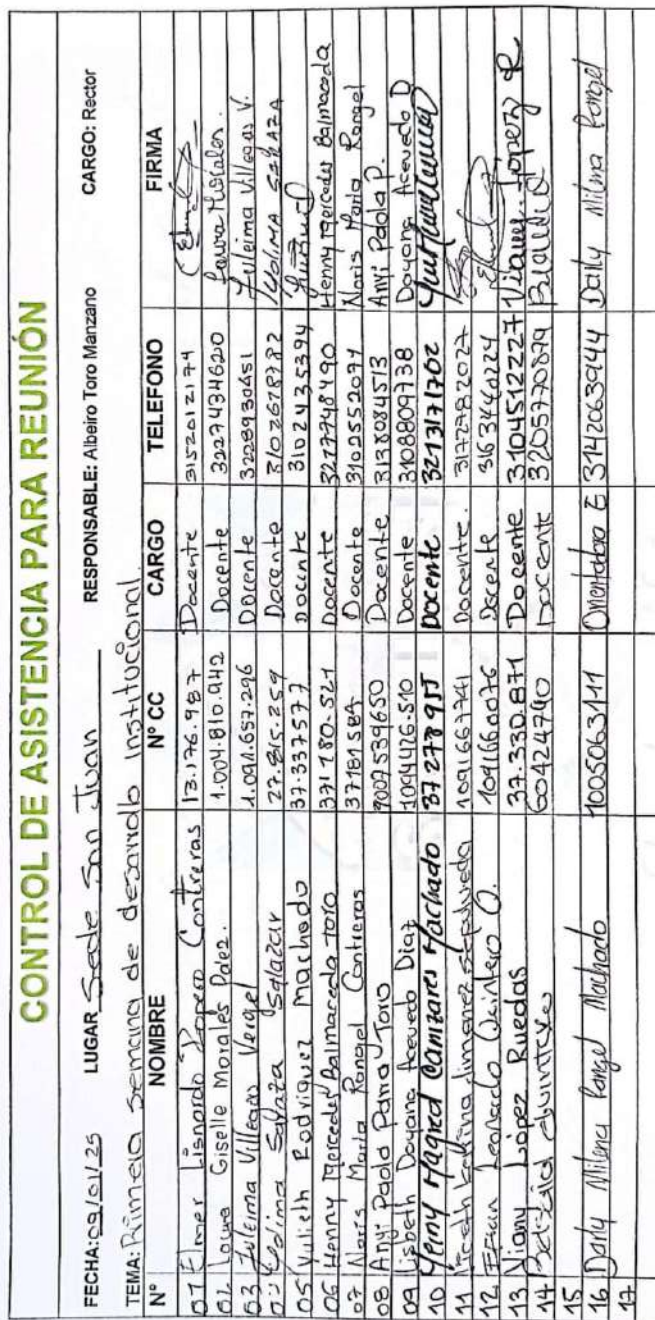 CONTROL DE ASISTENCIA PARA REUNIÓN
FECHA: 09/01/25 LUGAR Sede San Juan RESPONSABLE: Albeiro Toro Manzano CARGO: Rector
TEMA: Primera semana de desarrollo Institucional.
Nº NOMBRE Nº CC CARGO TELEFONO FIRMA
01 Elmer Lisnardo Contreras 13.176.987 Docente 3152012174
02 Laura Giselle Morales Paez. 1.004.810.942 Docente 3227434620 Laura Morales.
03 Zuleima Villegas Vergel 1.091.657.296 Docente 3228930651 Zuleima Villegas V.
04 Yolima Salazar 27.815.259 Docente 3102678782 Yolima
05 Yulieth Rodriguez Machado 37.337577 Docente 3102435394
06 Henny Mercedes Balmaceda Toro 37'180.521 Docente 3217748490 Henny Mercedes Balmaceda
07 Noris Maria Rangel Contreras 37181584 Docente 3102552071 Noris Maria Rangel
08 Anyi Paola Parra Toro 1007539650 Docente 3138084513 Anyi Paola P.
09 Lisbeth Dayana Acevedo Diaz 1094426.510 Docente 3108809738 Dayana Acevedo D
10 Yeiny Magred Cañizares Machado 37 278 955 Docente 3213171702
11 Jimenez Sepulveda 1091667741 Docente. 3172782027
12 Efrain Leonardo Quintero Q. 1091660076 Docente 3163440224
13 Viany López Ruedas 37.330.871 Docente 3104512227 Viany López R
14 60424740 Docente 3205770879
15
16 Darly Milena Rangel Machado 1005063111 Orientadora E 3142063944 Darly Milena Rangel
17